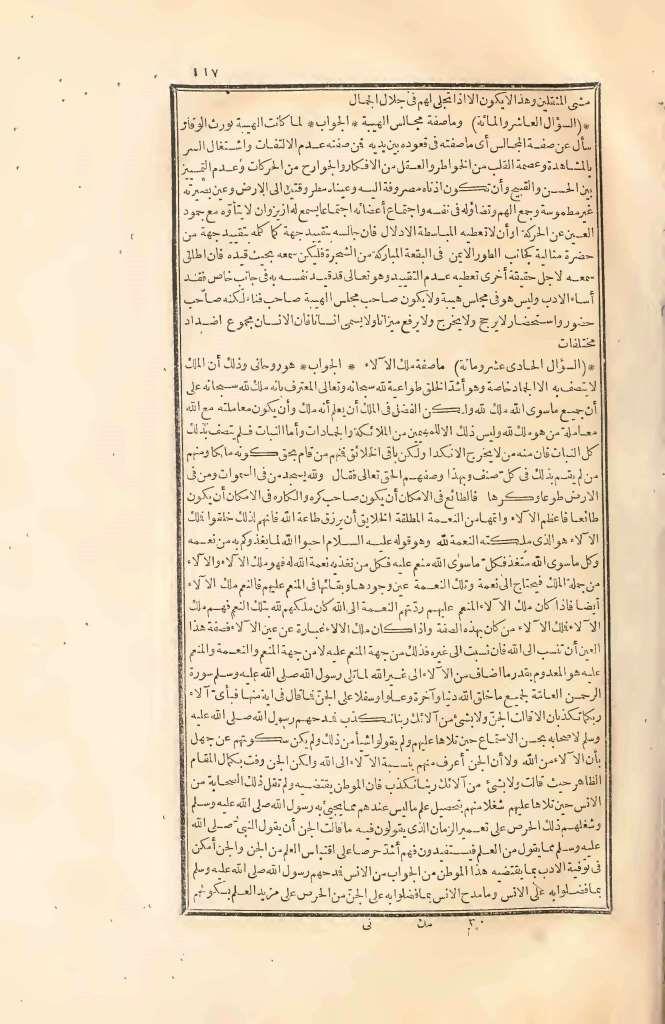 ١١٧
مشى المثقلين وهذا لا يكون الا اذا تجلى لهم فى جلال الجمال
*(السؤال العاشر والمائة) وما صفة مجالس الهيبة * الجواب* لما كانت الهيبة تورث الوقار
سأل عن صفة المجالس أى ما صفته فى قعوده بين يديه فن صفته عدم الالتفات واشتغال السر
بالمشاهدة وعصمة القلب من الخواطر والعقل من الافكار والجوارح من الحركات وعدم التمييز
بين الحسن والقبيح وأن تكون اذناه مصروفة اليه وعيناه مطروقتين الى الارض وعين بصيرته
غير مطموسة وجمع الهم وتضاؤله فى نفسه واجتماع أعضائه اجتماعا يسمع له ازيز وان لا يتأوه مع جمود
العين عن الحركة اوأن لا تعطيه المباسطة الادلال فان جالسه بتقييد جهة كما كلمه بتقييد جهة من
حضرة مثالية بجانب الطور الايمن فى البقعة المباركة من الشجرة فليكن سمعه بحيث قيده فان اطلق
سمعه لاجل حقيقة أخرى تعطيه عدم التقييد وهو تعالى قد قيد نفسه به فى جانب خاص فقد
أساء الادب وليس هو فى مجلس هيبة ولا يكون صاحب مجلس الهيبة صاحب فناء لكنه صاحب
حضور واستحضار لا يرجح ولا يخرج ولا يرفع ميزانا ولا يسمى انسانا فان الانسان مجموع اضداد
مختلفات
*(السؤال الحادى عشر ومائة) ما صفة ملك الآلاء * الجواب * هو روحانى وذلك أن الملك
لا يتصف به الا الجماد خاصة وهو أشد الخلق طواعية لله سبحانه وتعالى المعترف بانه ملك لله سبحانه على
أن جميع ما سوى الله ملك لله ولكن الفضل فى الملك أن يعلم أنه ملك وأن يكون معاملته مع الله
معاملة من هو ملك لله وليس ذلك الا للمهيمين من الملائكة والجمادات وأما النبات فلم يتصف بذلك
كل النبات فان منه من لا يخرج الا نكدا ولكن باقى الخلائق فنهم من قام بحق كونه ملكا ومنهم
من لم يقم بذلك فى كل صنف وبهذا وصفهم الحق تعالى فقال ولله يسجد من فى السموات ومن فى
الارض طوعا وكرها فالطائع فى الامكان أن يكون صاحب كره والكاره فى الامكان أن يكون
طائعا فاعظم الآلاء واتمها من النعمة المطلقة الخلايق أن يرزق طاعة الله فانهم لذلك خلقوا فلك
الآلاء هو الذى ملكته النعمة لله وهو قوله عليه السلام احبوا الله لما يغذوكم به من نعمه
وكل ماسوى الله متغذ فكل ماسوى الله منعم عليه فكل من تغذيه نعمة الله له فهو ملك الآلاء والآلاء
من جملة الملك فيحتاج الى نعمة وتلك النعمة عين وجودها وبقائها فى المنعم عليهم فالنعم ملك الآلاء
أيضا فاذا كان ملك الآلاء المنعم عليهم ردتهم النعمة الى الله كان ملكهم لله بتلك النعم فهم ملك
الآلاء فلك الآلاء من كان بهذه الصفة واذا كان ملك الآلاء عبارة عن عين الآلاء فصفة هذا
العين أن تنسب الى الله فان نسبت الى غيره فذلك من جهة المنعم عليه لا من جهة المنعم والنعمة والمنعم
عليه هو المعدوم بقدر ما اضاف من الآلاء الى غير الله لما تلى رسول الله صلى الله عليه وسلم سورة
الرحمن العامة لجميع ما خلق الله دنيا وآخرة وعلوا وسفلا على الجن فما قال فى اية منها فبأى آلاء
ربكما تكذبان الا قالت الجن ولا بشئ من آلائك ربنا نكذب فمدحهم رسول الله صلى الله عليه
وسلم لاصحابه بحسن الاستماع حين تلاها عليهم ولم يقولوا شيأ من ذلك ولم يكن سكوتهم عن جهل
بأن الآلاء من الله ولا أن الجن أعرف منهم بنسبة الآلاء الى الله ولكن الجن وفت بكمال المقام
الظاهر حيث قالت ولا بشئ من آلائك ربنا نكذب فان الموطن يقتضيه ولم تقل ذلك الصحابة من
الانس حين تلاها عليهم شغلا منهم بتحصيل علم ما ليس عندهم مما يجئ به رسول الله صلى الله عليه وسلم
وشغلهم ذلك الحرص على تعمير الزمان الذى يقولون فيه ما قالت الجن أن يقول النبى صلى الله
عليه وسلم مما يقول من العلم فيستفيدون فهم أشد حرصا على اقتباس العلم من الجن والجن أمكن
فى توفية الادب بما يقتضيه هذا الموطن من الجواب من الانس فمدحهم رسول الله صلى الله عليه وسلم
بما فضلوا به على الانس وما مدح الانس بما فضلوا به على الجن من الحرص على مزيد العلم بسكوتهم
٣٠ مك نى